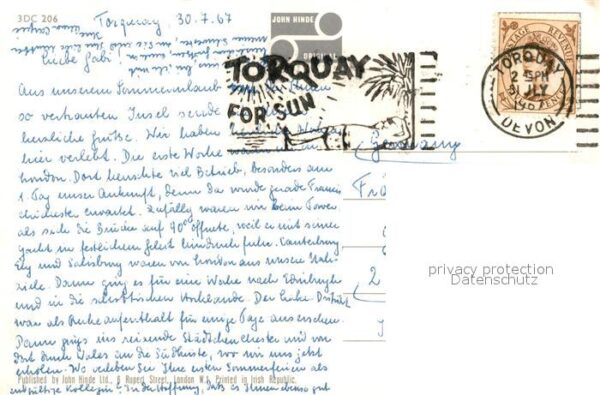 3DC 206
Torquay 30.7.67
JOHN HINDE
ORIGINAL
Liebe Gabi!
TORQUAY
FOR SUN
POSTAGE REVENUE
TORQUAY
2 15 PM
31 JLY
1967
DEVON
Aus unserem Sommerurlaub
so vertrauten Insel sende
herzliche Grüße. Wir haben
hier verlebt. Die erste Woche waren wir in
Germany
London. Dort herrschte viel Betrieb, besonders am
1. Tag unser Ankunft, denn da wurde gerade Francis
Chichester erwartet. Zufällig waren wir beim Tower
als sich die Brücke auf 90° öffnete, weil er mit seiner
Yacht im festlichen Geleit hindurch fuhr. Canterbury
Ely und Salisbury waren von London aus unsere Reise-
ziele. Dann ging es für eine Woche nach Edinburgh
und in die schottischen Hochlande. Der Lake-District
war als Ruheaufenthalt für einige Tage ausersehen.
Dann ging's ins reizende Städtchen Chester und von
dort durch Wales an die Südküste, wo wir uns jetzt
erholen. Wo verleben Sie Ihre ersten Sommerferien als
endgültige Kollegin? In der Hoffnung, daß es Ihnen ebenso gut
privacy protection
Datenschutz
Published by John Hinde Ltd., 6 Rupert Street, London W.1. Printed in Irish Republic.